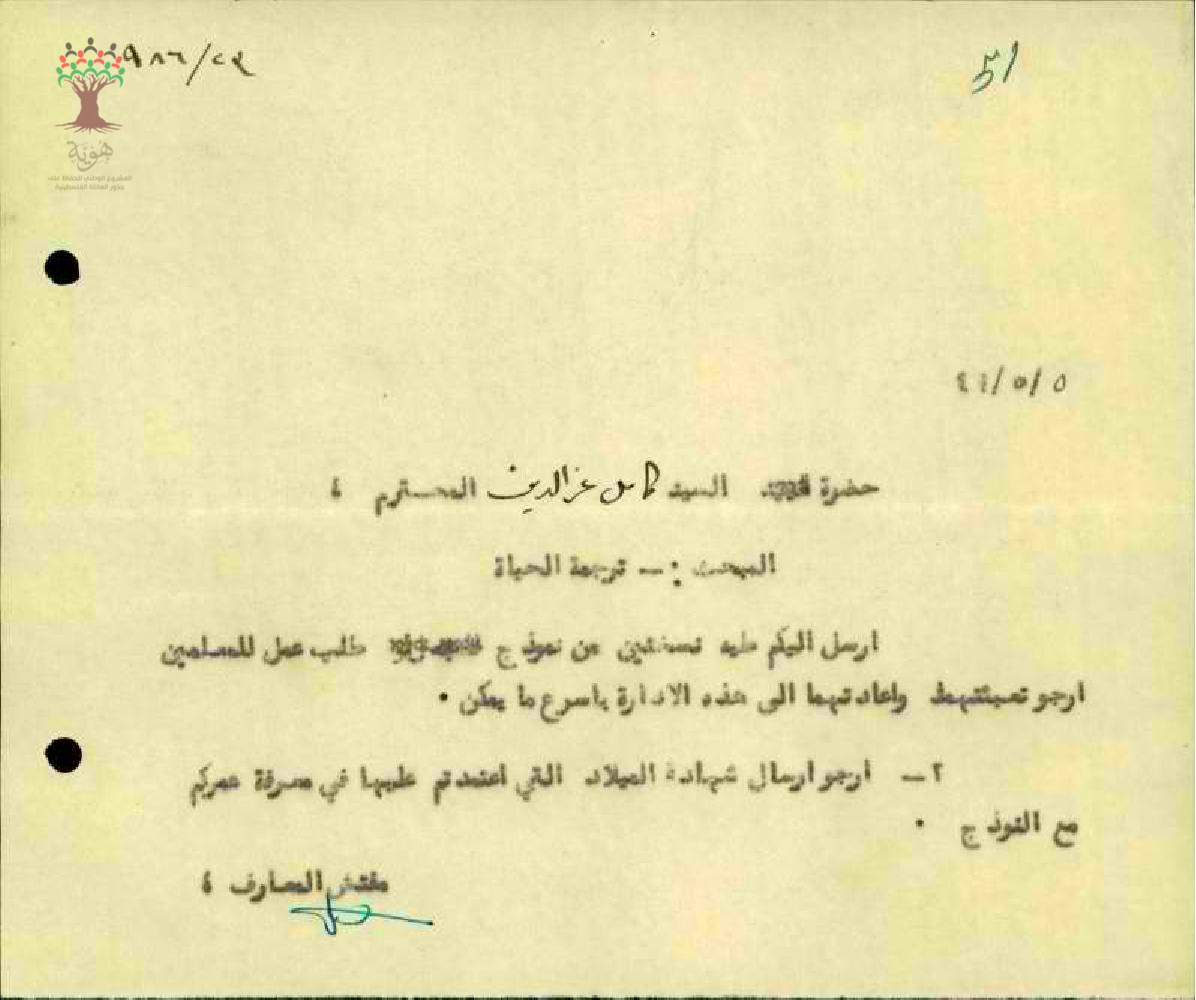 ٩٨٦/٢٩
51
هوية
المشروع الوطني للحفاظ على
جذور العائلة الفلسطينية
٥/٥/٤١
حضرة السيد كامل عز الدين المحترم ،
المبحث :ــ ترجمة الحياة
ارسل اليكم طيه نسختين من نموذج طلب عمل للمعلمين
ارجو تعبئتهما واعادتهما الى هذه الادارة باسرع ما يمكن ٠
٢ــ ارجو ارسال شهادة الميلاد التي اعتمدتم عليها في معرفة عمركم
مع النموذج ٠
مفتش المعارف ،